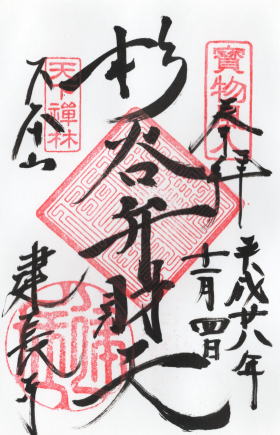 寶物風入
奉拝
平成廿八年
十一月四日
杉谷弁財天
天下禪林
巨福山
建長寺